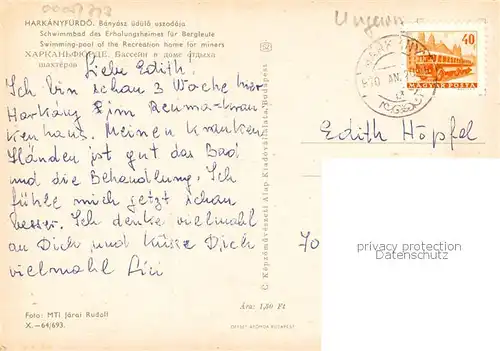 HARKÁNYFÜRDŐ. Bányász üdülő uszodája
Schwimmbad des Erholungsheimes für Bergleute
Swimming-pool of the Recreation home for miners
ХАРКАНЬФЮРДЕ. Бассейн в доме отдыха
шахтёров
Liebe Edith!
Ich bin schon 3 Woche hier
Harkány im Reuma-kran
kenhaus. Meinen kranken
Händen ist gut das Bad
und die Behandlung. Ich
fühle mich jetzt schon
besser. Ich denke vielmahl
an Dich und küsse Dich
vielmahl
Foto: MTI Járai Rudolf
X.-64/693.
C. Képzőművészeti Alap Kiadóvállalata, Budapest
Ungarn
40
MAGYAR POSTA
Edith Höpfel
70
Ára: 1,50 Ft
OFFSET NYOMDA BUDAPEST
privacy protection
oldthing.de